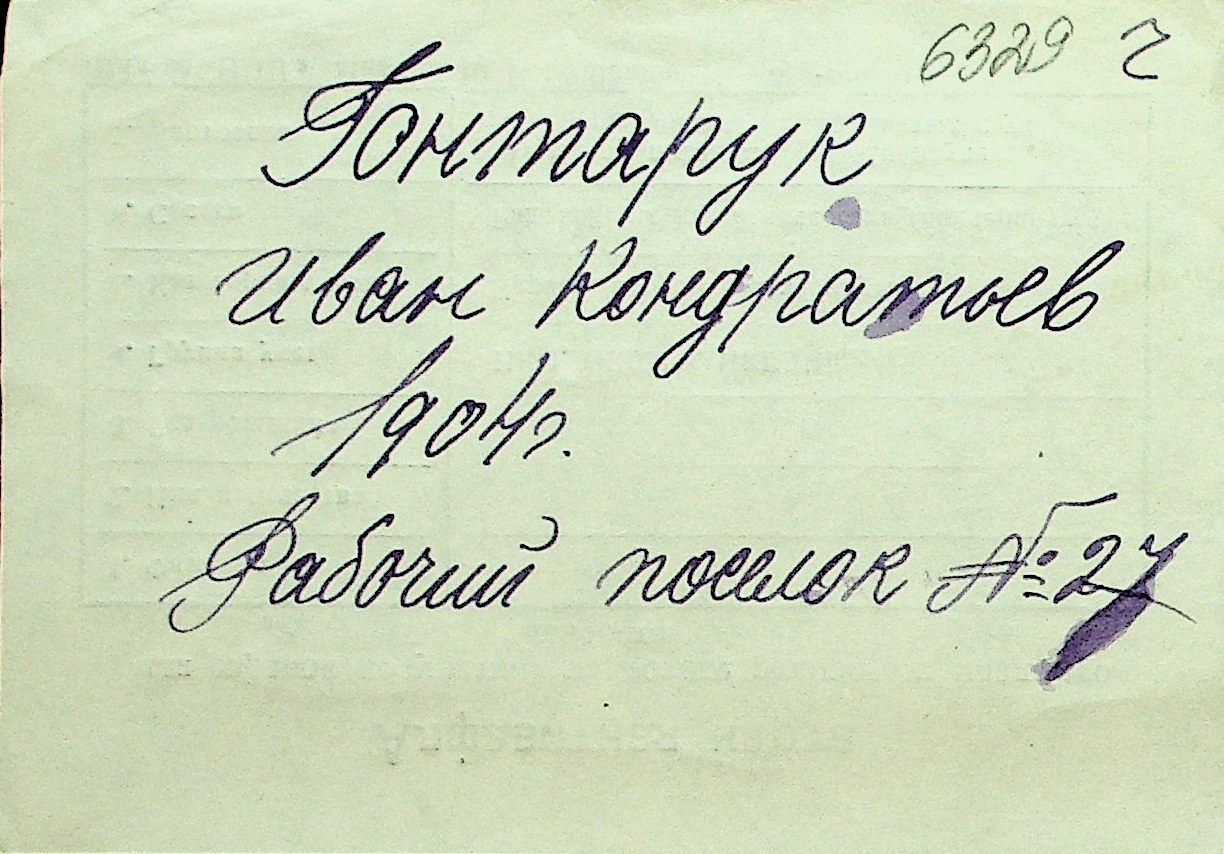 6329 г
Гонтарук
Иван Кондратьев
1904г.
Рабочий поселок №27